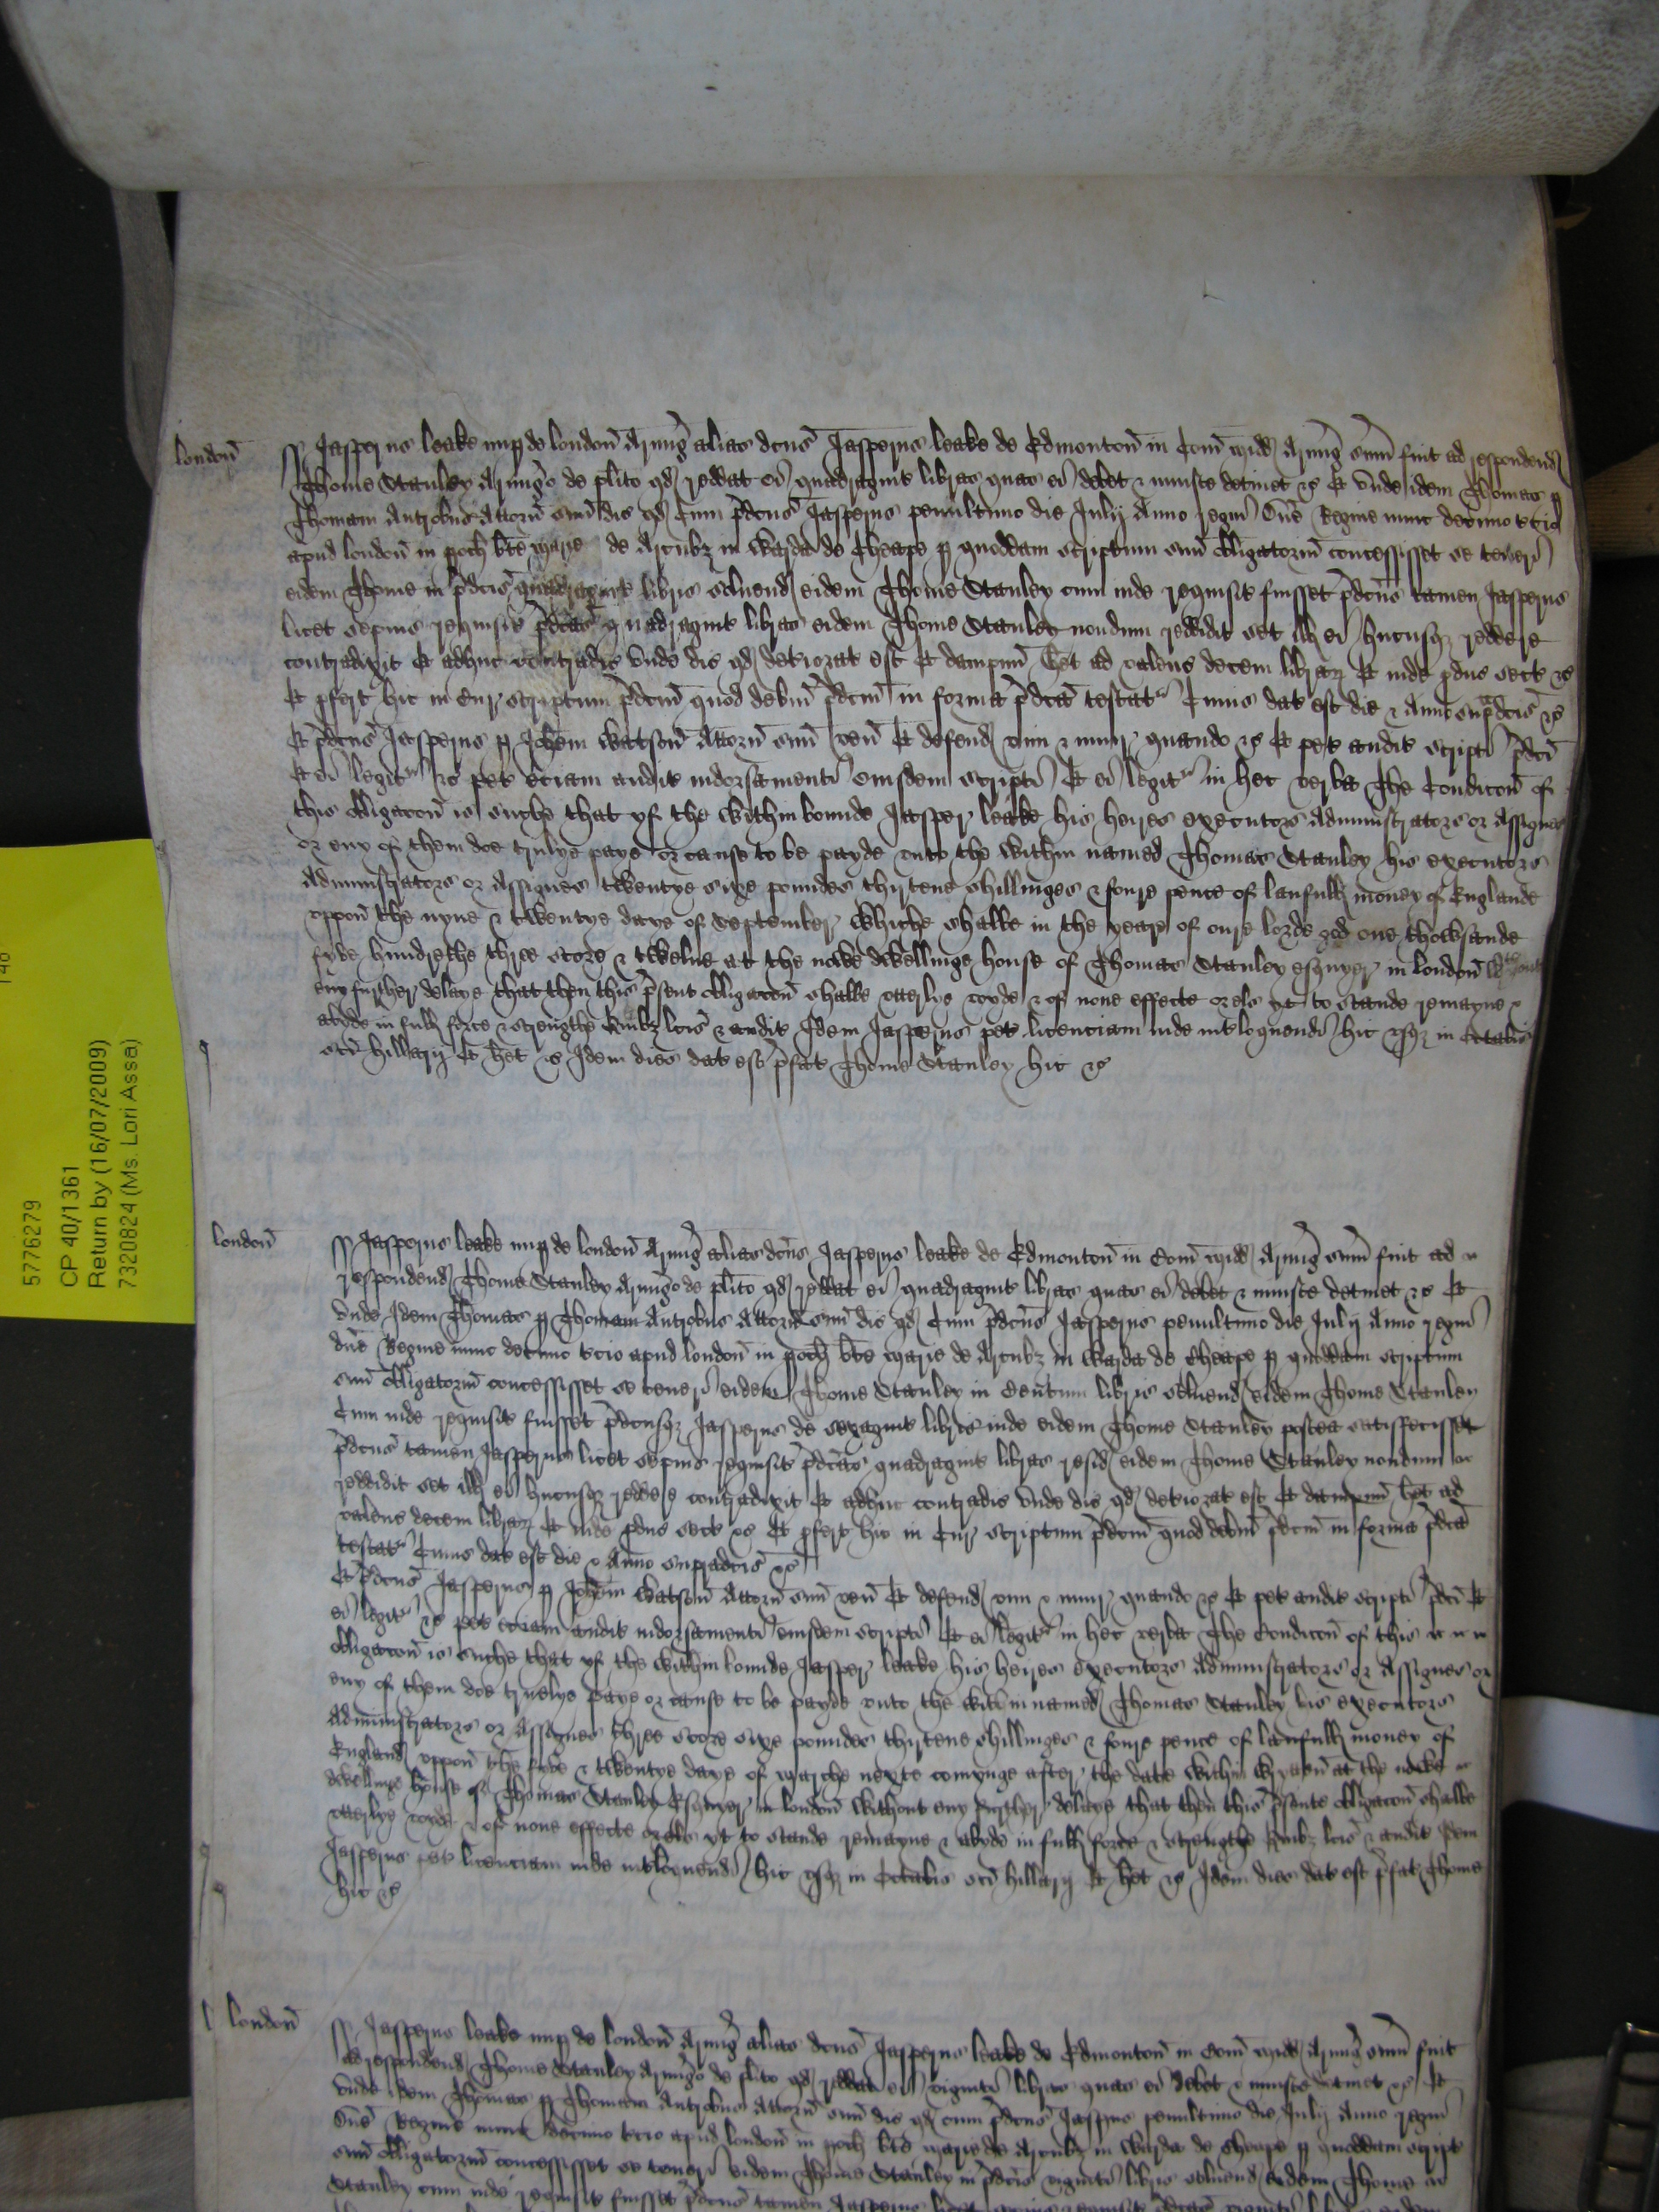 5776279
CP 40/1361
Return by (16/07/2009)
7320824 (Ms. Lori Assa)
londoñ
Jasperus leake nup de londoñ Armig alias dcus Jasperus leake de Edmontoñ in Com midd Armig sum fuit ad respondend
Thome Stanley Armigo de plito qd reddat ei quadragint libras quas ei debet & iniuste detinet &c Et unde idem Thomas p
Thomam Antrobus Attorn suu dic qd Cum pdcus Jasperus penultimo die Julij Anno regni Dne Regine nunc decimo tcio
apud londoñ in poch bte marie de Arcubz in Warda de Cheape p quoddam scriptum suu obligatorm concessisset se teneri
eidem Thome in pdcis quadragint libris solvend eidem Thome Stanley cum inde requisit fuisset pdcus tamen Jasperus
licet sepius requisit pdcas quadragint libras eidem Thome Stanley nondum reddidit set ill ei hucusqz reddere
contradixit Et adhuc contradic Unde dic qd deteriorat est Et dampnu het ad valenc decem librarz Et inde pduc sect &c
Et pfert hic in Cur scriptum pdcm quod debm pdcm in forma pdca testat Cuius dat est die & Anno supradcis &c
Et pdcus Jasperus p Johem Wattson Attorn suu ven Et defend vim & iniur quando &c Et pet audit scripti pdci
Et ei legit &c pet eciam audit indorsamenti eiusdem scripti Et ei legit in hec verba The Condicon of
this obligacon is suche that yf the within bounde Jasper leake his heyres executors Administrators or Assignes
or eny of them doe trulye paye or cause to be payde unto the within named Thomas Stanley his executors
Administrators or Assignes twentye sixe poundes thirtene shillinges & foure pence of laufull money of Englande
uppon the nyne & twentye daye of September whiche shalbe in the yeare of oure lorde god one thowsande
fyve hundrethe three score & twelue at the nowe dwellinge house of Thomas Stanley esquyer in london
eny further delaye that then this psent obligacon shalbe utterlye voyde & of none effecte or els yt to stande remayne &
abyde in full force & strengthe Quibz lcis & audit Idem Jasperus pet licenciam inde intloquendi hic usqz in Octabis
sci hillarij Et het &c Idem dies dat est pfat Thome Stanley hic &c
londoñ
Jasperus leake nup de londoñ Armig alias dcus Jasperus leake de Edmontoñ in Com midd Armig sum fuit ad
respondend Thome Stanley Armigo de plito qd reddat ei quadragint libras quas ei debet & iniuste detinet &c Et
unde Idem Thomas p Thomam Antrobus Attorn suu dic qd Cum pdcus Jasperus penultimo die Julij Anno regni
dne Regine nunc decimo tcio apud londoñ in poch bte marie de Arcubz in Warda de Cheape p quoddam scriptum
suu obligatorm concessisset se teneri eidem Thome Stanley in Centum libris solvend eidem Thome Stanley
Cum inde requisit fuisset pdcusqz Jasperus de sexagint libris inde eidem Thome Stanley postea satisfecisset
pdcus tamen Jasperus licet sepius requisit pdcas quadragint libras resid eidem Thome Stanley nondum
reddidit set ill ei hucusqz reddere contradixit Et adhuc contradic Unde dic qd deteriorat est Et dampnu het ad
valenc decem librarz Et inde pduc sect &c Et pfert hic in Cur scriptum pdcm quod debm pdcm in forma pdca
testat Cuius dat est die & Anno supradcis &c
Et pdcus Jasperus p Johem Watson Attorn suu ven Et defend vim & iniur quando &c Et pet audit scripti pdci Et
ei legit &c pet eciam audit indorsamenti eiusdem scripti Et ei legit in hec verba The Condicon of this
obligacon is suche that yf the within bounde Jasper leake his heyres executors Administrators or Assignes or
eny of them doe truelye paye or cause to be payde unto the within named Thomas Stanley his executors
Administrators or Assignes three score sixe poundes thirtene shillinges & foure pence of laufull money of
England uppon the fyve & twentye daye of Marche nexte comynge after the date within wrytten at the nowe
dwellinge house of Thomas Stanley Esquyer in london without eny further delaye that then this psente obligacon shalbe
utterlye voyde & of none effecte or els yt to stande remayne & abyde in full force & strengthe Quibz lcis & audit Idem
Jasperus pet licenciam inde intloquendi hic usqz in Octabis sci hillarij Et het &c Idem dies dat est pfat Thome
hic &c
londoñ
Jasperus leake nup de londoñ Armig alias dcus Jasperus leake de Edmontoñ in Com midd Armig sum fuit
ad respondend Thome Stanley Armigo de plito qd reddat ei viginti libras quas ei debet & iniuste detinet &c Et
unde idem Thomas p Thomam Antrobus Attorn suu dic qd cum pdcus Jasperus penultimo die Julij Anno regni
Dne Regine nunc decimo tcio apud londoñ in poch bte marie de Arcubz in Warda de Cheape p quoddam script
suu obligatorm concessisset se teneri eidem Thome Stanley in pdcis viginti libris solvend eidem Thome
Stanley cum inde requisit fuisset pdcus tamen Jasperus licet